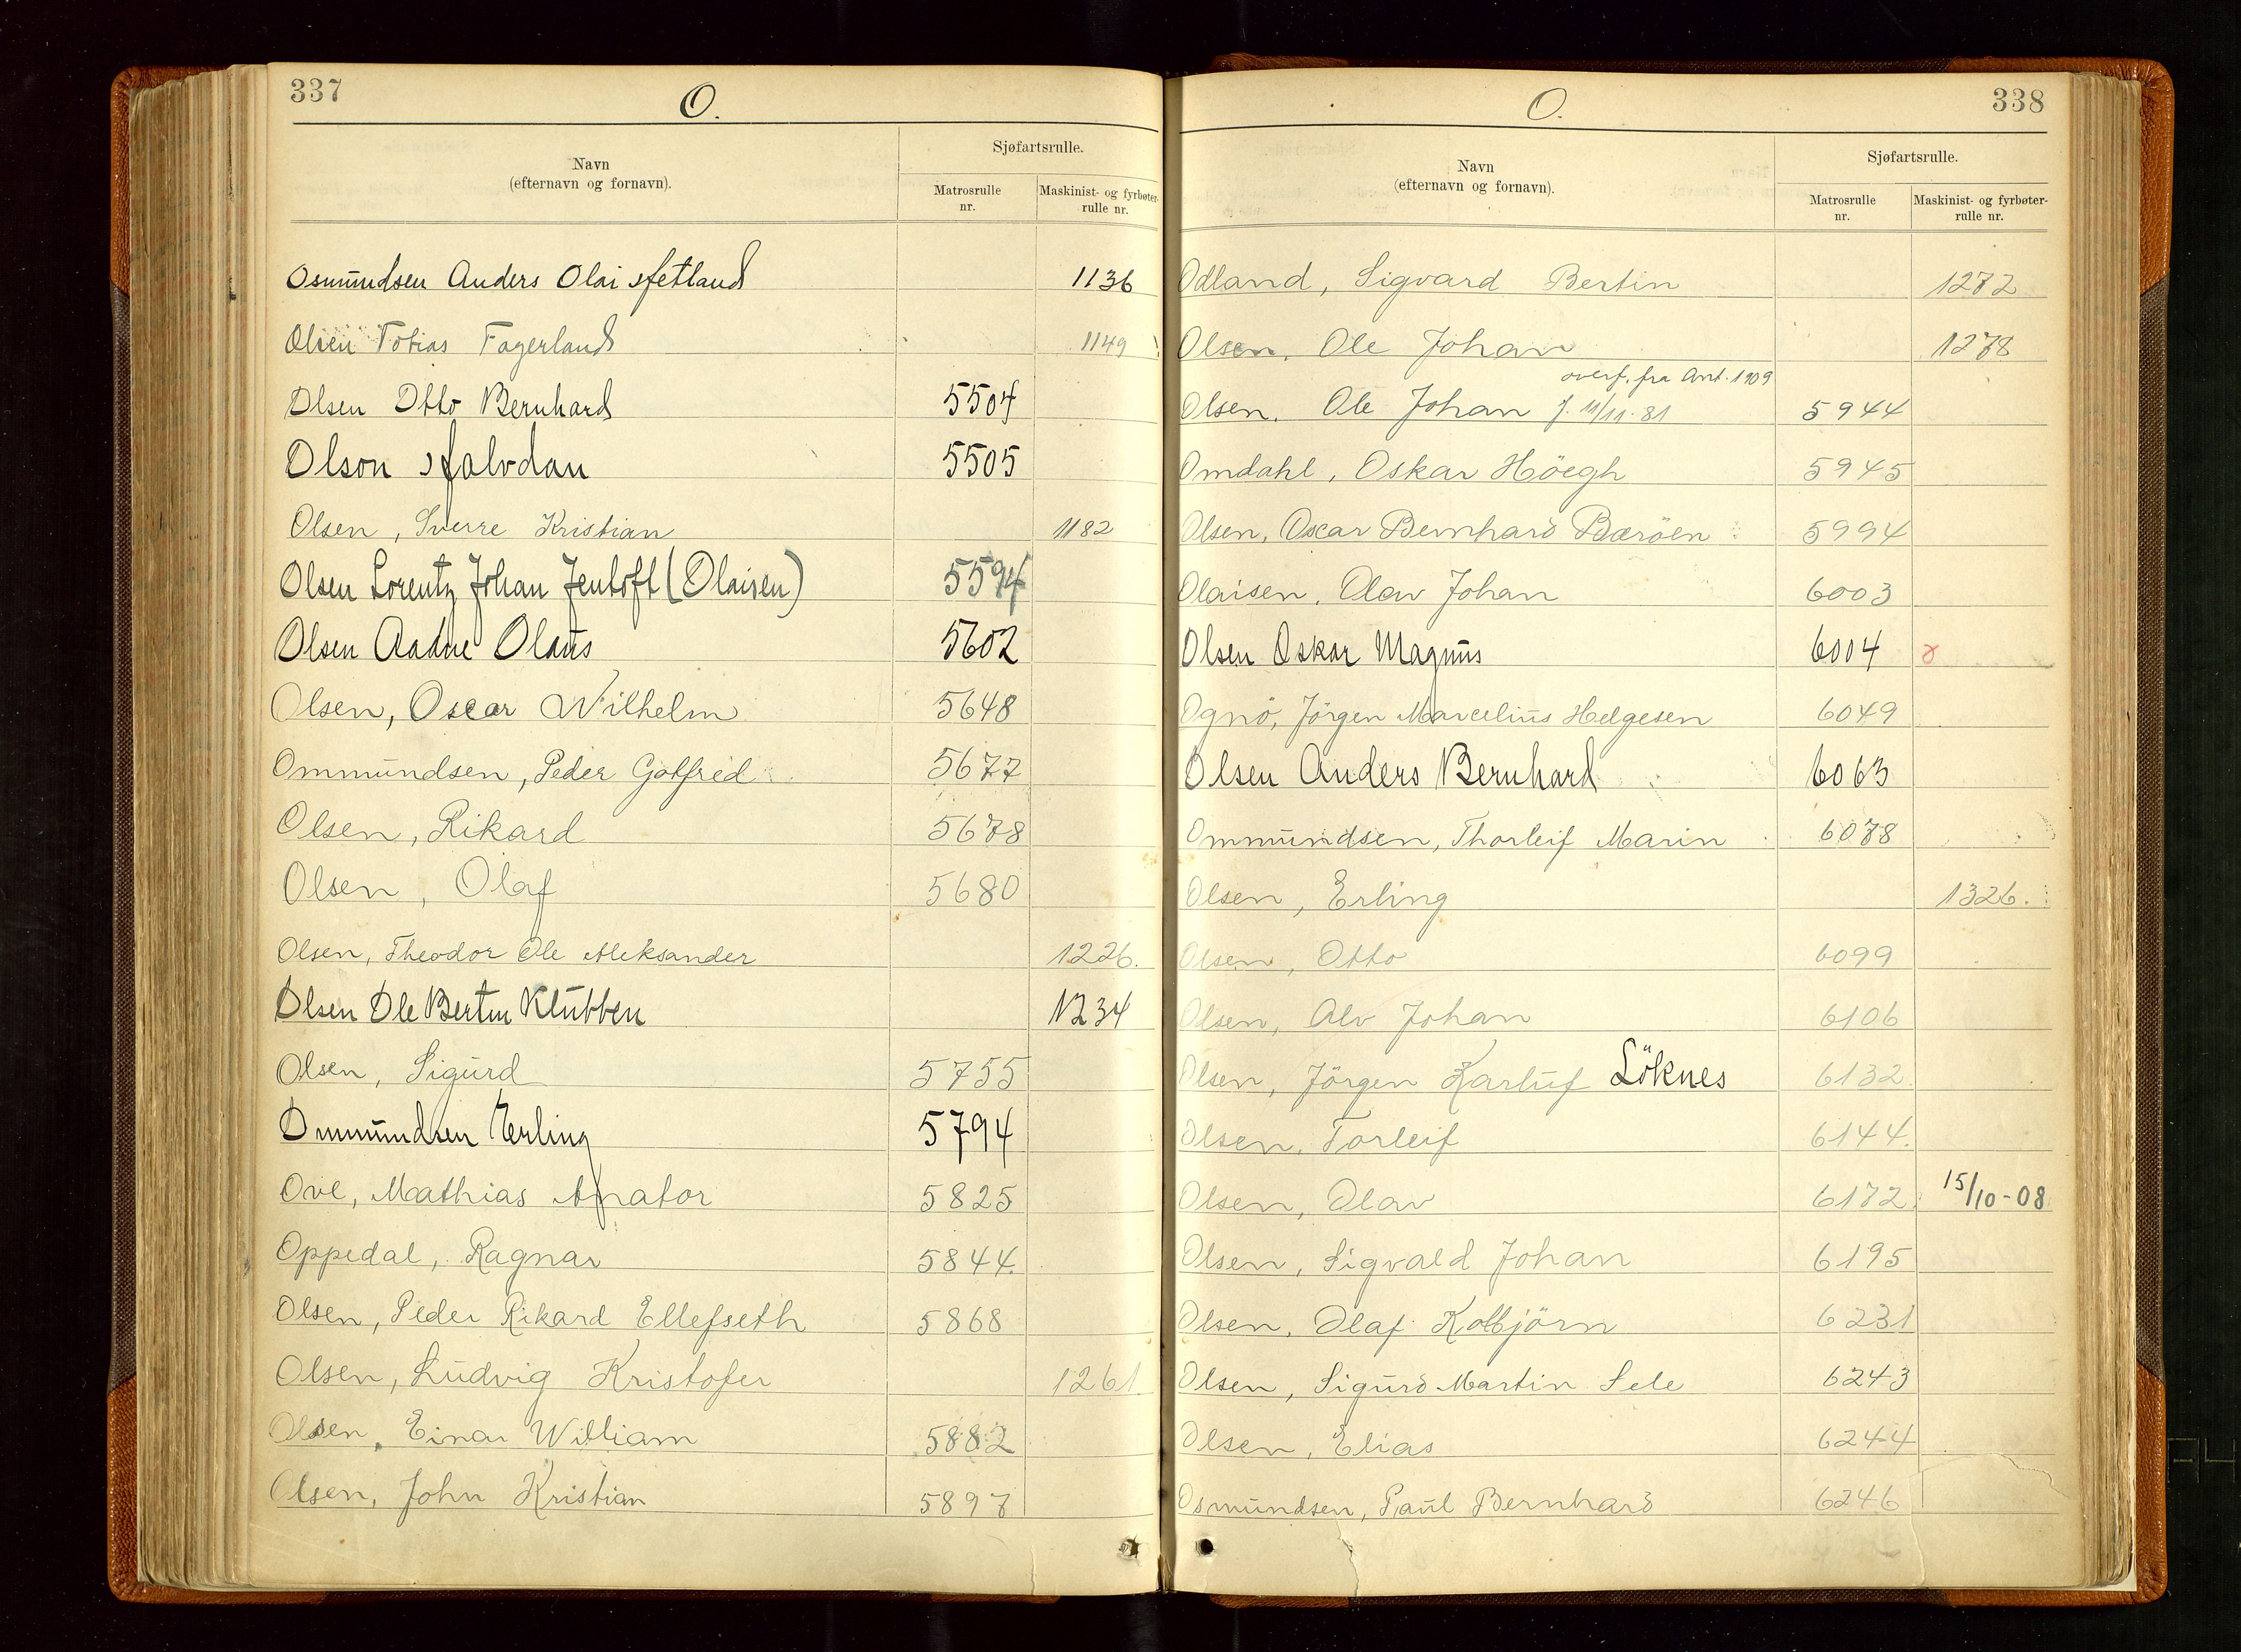 337
O.
Navn
(efternavn og fornavn).
Sjøfartsrulle.
Matrosrulle
nr.
Maskinist- og fyrbøter-
rulle nr.
Osmundsen Anders Olai Hetland 1136
Olsen Tobias Fagerland 1149
Olsen Otto Bernhard 5504
Olson Halvdan 5505
Olsen, Sverre Kristian 1182
Olsen Lorentz Johan Jentoft (Olaisen) 5594
Olsen Aadne Olaus 5602
Olsen, Oscar Wilhelm 5648
Ommundsen, Peder Gotfred 5677
Olsen, Rikard 5678
Olsen, Olaf 5680
Olsen, Theodor Ole Aleksander 1226.
Olsen Ole Bertin Klubben 1234
Olsen, Sigurd 5755
Ommundsen Erling 5794
Ove, Mathias Anator 5825
Oppedal, Ragnar 5844.
Olsen, Peder Rikard Ellefseth 5868
Olsen, Ludvig Kristofer 1261
Olsen, Einar William 5882
Olsen, John Kristian 5897
338
O.
Navn
(efternavn og fornavn).
Sjøfartsrulle.
Matrosrulle
nr.
Maskinist- og fyrbøter-
rulle nr.
Odland, Sigvard Bertin 1272
Olsen, Ole Johan 1278
overf. fra Ant. 1909
Olsen, Ole Johan f. 11/11.81 5944
Omdahl, Oskar Höegh 5945
Olsen, Oscar Bernhard Bærøen 5994
Olaisen, Olav Johan 6003
Olsen Oskar Magnus 6004
Ognö, Jörgen Marcelius Helgesen 6049
Olsen Anders Bernhard 6063
Ommundsen, Thorleif Marin 6078
Olsen, Erling 1326.
Olsen, Otto 6099
Olsen, Alv Johan 6106
Olsen, Jörgen Karluf Löknes 6132.
Olsen, Torleif 6144.
Olsen, Olav 6172. 15/10-08
Olsen, Sigvald Johan 6195
Olsen, Olaf Kolbjörn 6231
Olsen, Sigurd Martin Sele 6243
Olsen, Elias 6244
Osmundsen, Paul Bernhard 6246